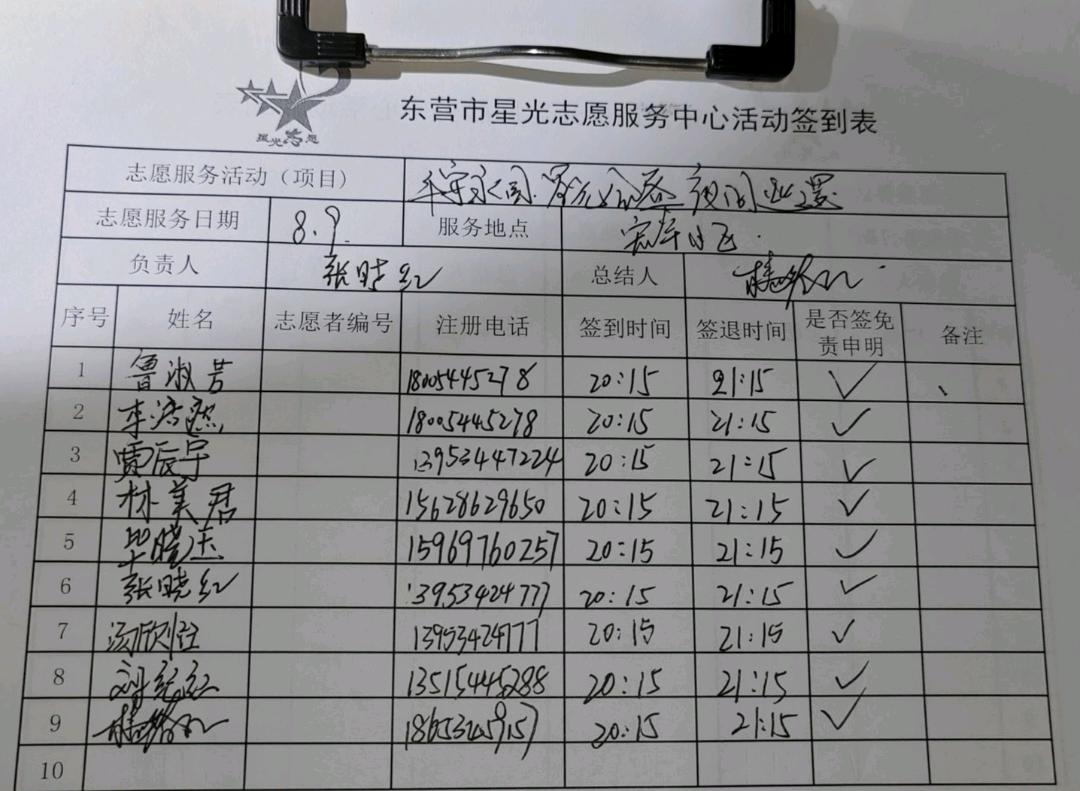 星光志愿
东营市星光志愿服务中心活动签到表
志愿服务活动（项目）
志愿服务日期 8.9. 服务地点
负责人 张晓红 总结人
序号 姓名 志愿者编号 注册电话 签到时间 签退时间 是否签免责申明 备注
1 鲁淑芳 18005445278 20:15 21:15 ✓ 、
2 李浩然 18005445278 20:15 21:15 ✓
3 贾辰宇 13953447224 20:15 21:15 ✓
4 林美君 15628629650 20:15 21:15 ✓
5 毕晓玉 15969760257 20:15 21:15 ✓
6 张晓红 13953424777 20:15 21:15 ✓
7 13953424777 20:15 21:15 ✓
8 13515445288 20:15 21:15 ✓
9 20:15 21:15 ✓
10